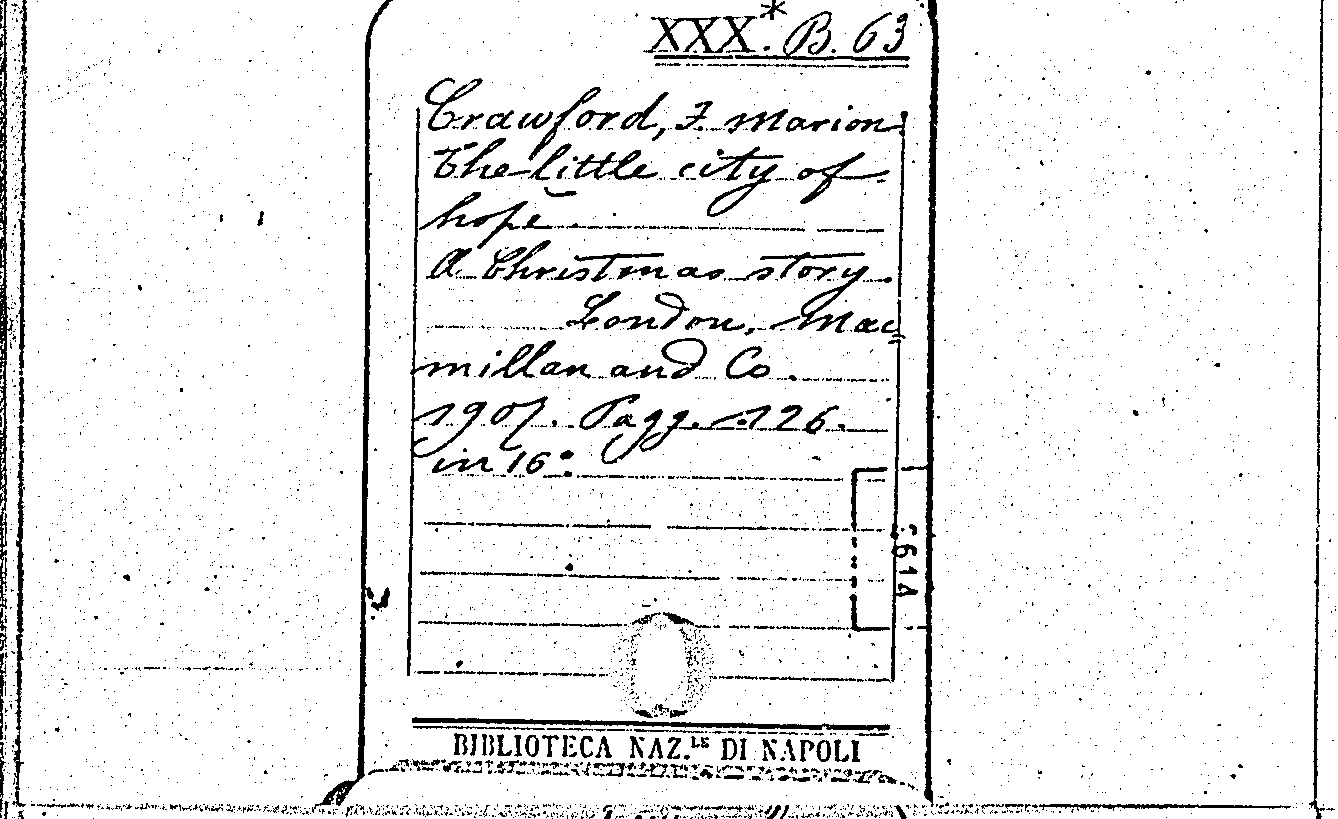 XXX.* B. 63
Crawford, F. Marion.
The little city of
hope.
A Christmas story.
London, Mac
millan and Co.
1907. Pagg. 126.
in 16°.
BIBLIOTECA NAZ.LE DI NAPOLI